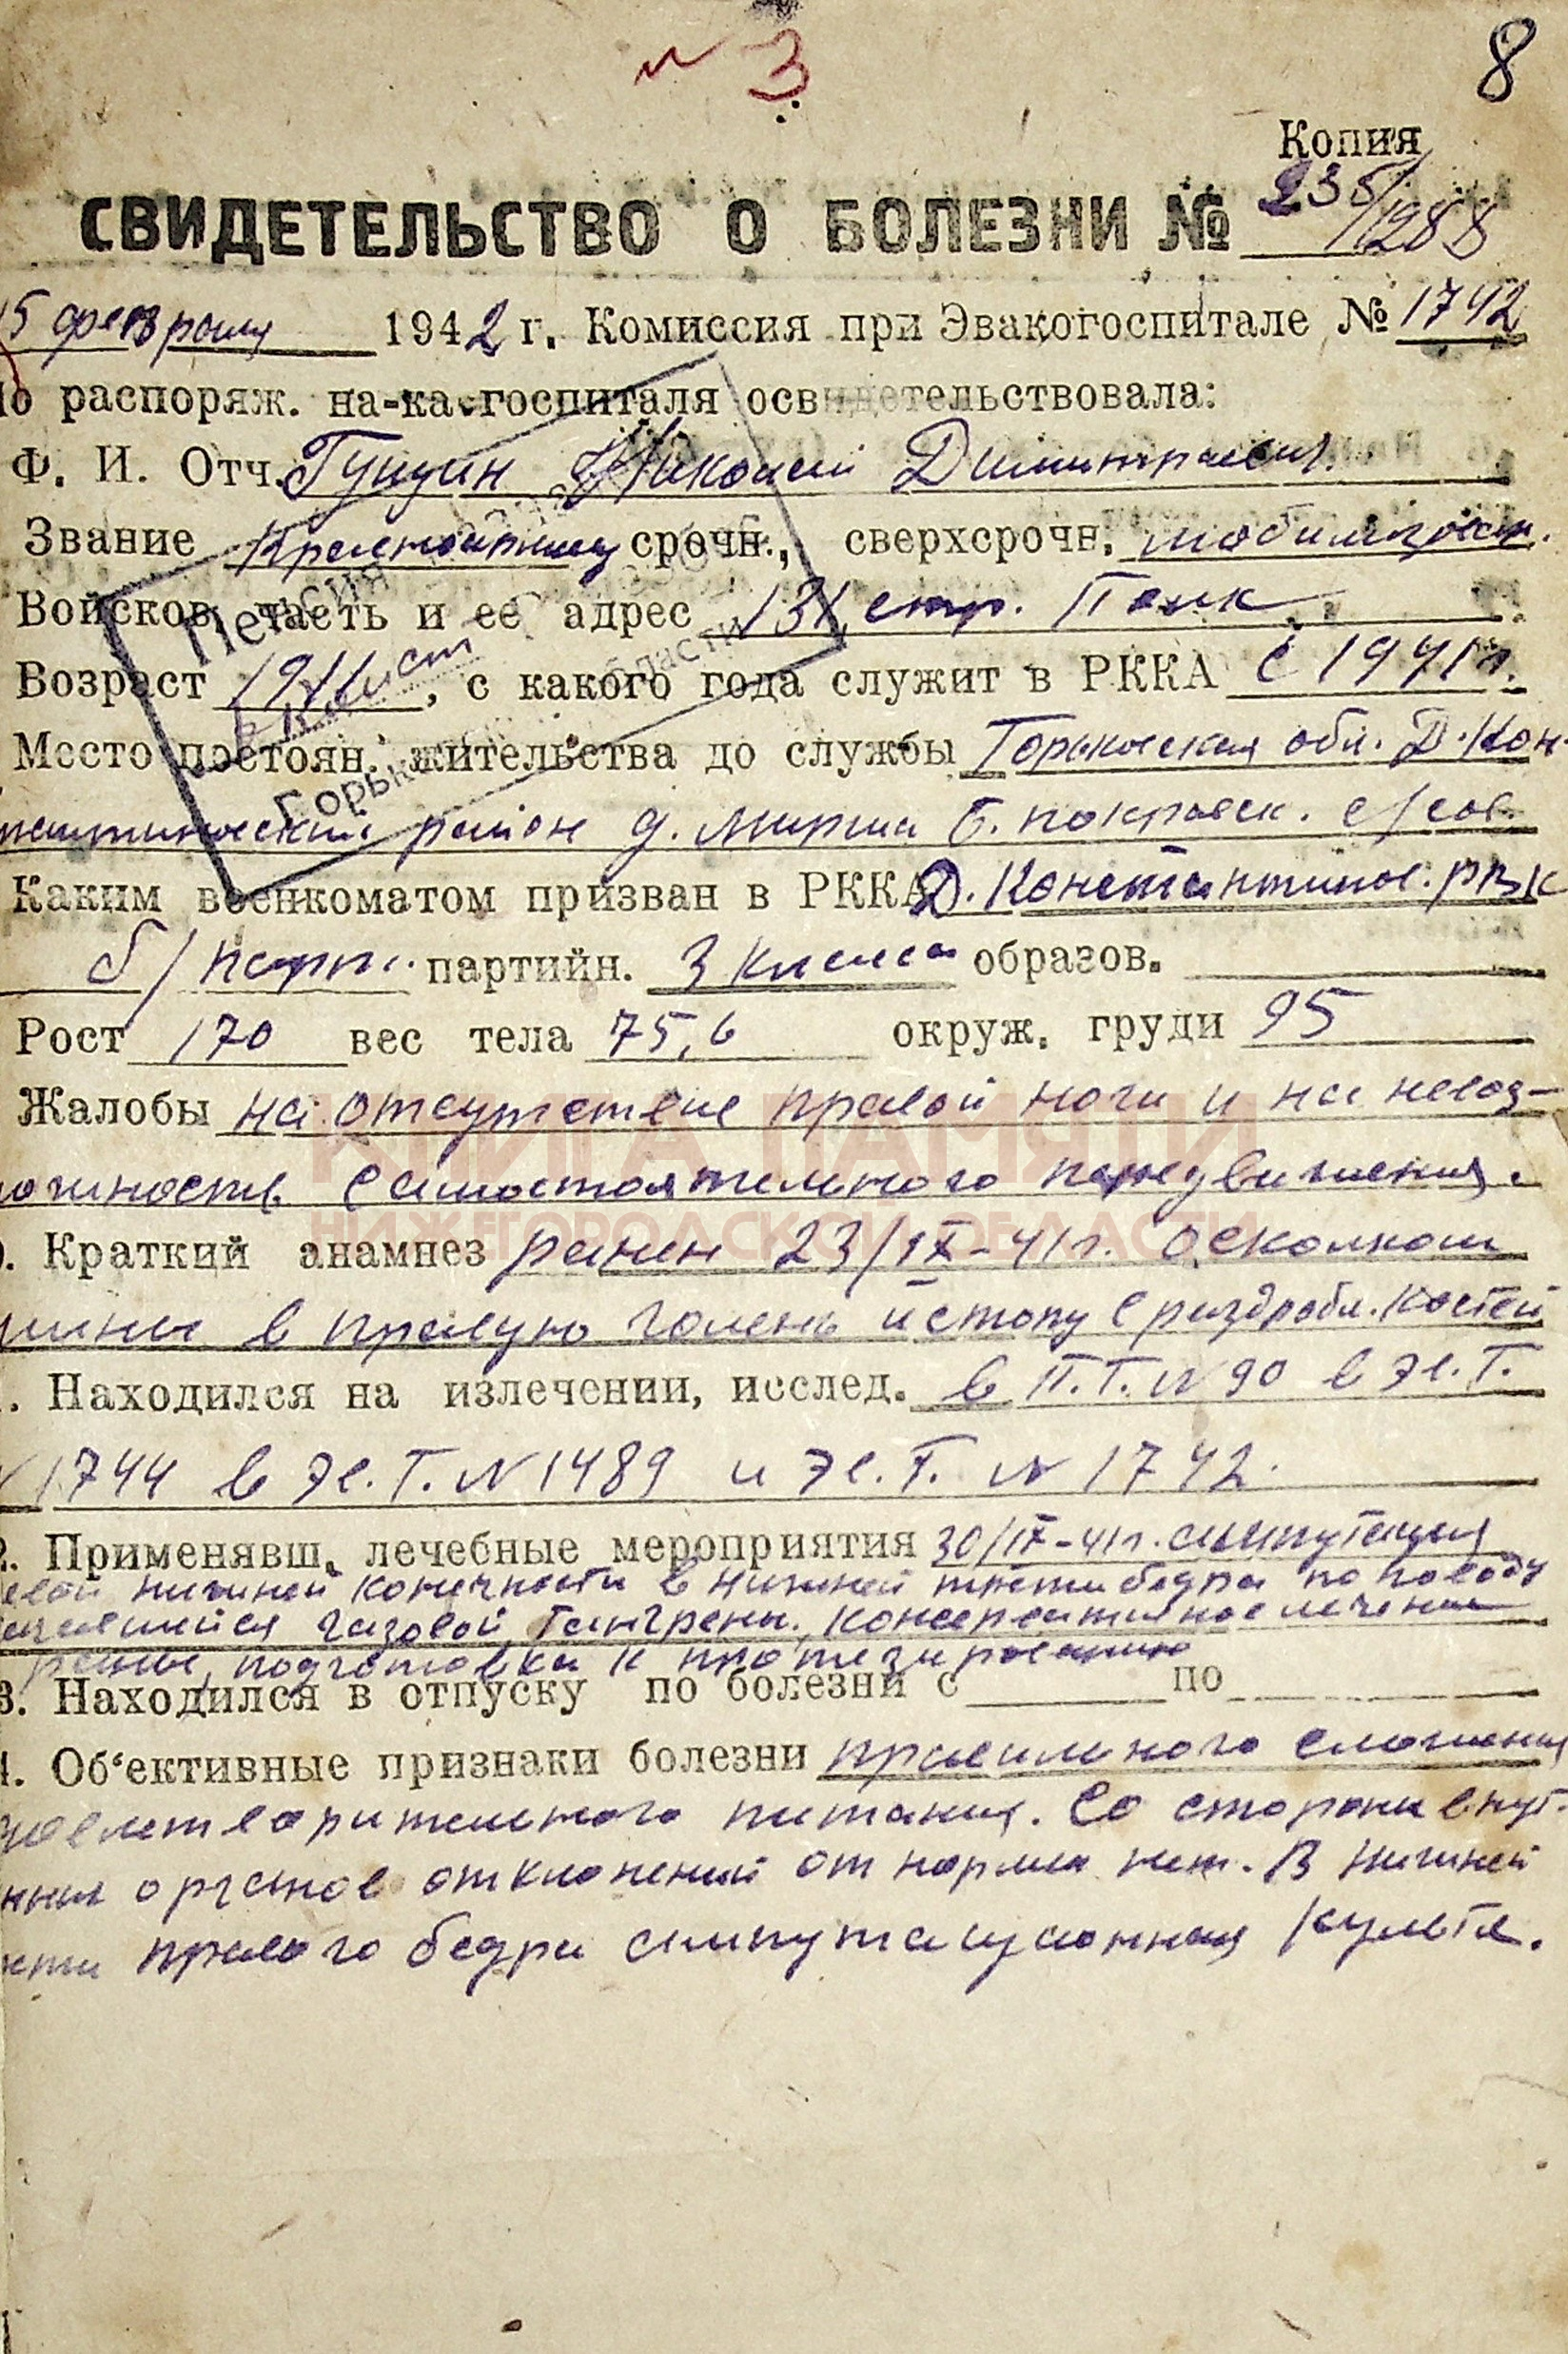 № 3
8
Копия
СВИДЕТЕЛЬСТВО О БОЛЕЗНИ № 235/1288
15 февраля 1942 г. Комиссия при Эвакогоспитале № 1742
По распоряж. на-ка госпиталя освидетельствовала:
Ф. И. Отч. Гущин Николай Димитриевич.
Звание Красноармеец срочн., сверхсрочн. мобилизован.
Войсков. часть и ее адрес 131 стр. Полк
Возраст 1911, с какого года служит в РККА с 1941 г.
Место постоян. жительства до службы Горьковская обл. Д. Кон-
стантиновский район д. Мирша Б. покровск. с/сов.
Каким военкоматом призван в РККА Д. Константинов. РВК
б/парт. партийн. 3 класса образов.
Рост 170 вес тела 75,6 окруж. груди 95
Жалобы на отсутствие правой ноги и на невоз-
можность самостоятельного передвижения.
. Краткий анамнез ранен 23/IX-41 г. осколком
мины в правую голень и стопу с раздробл. костей
. Находился на излечении, исслед. в П.Г. № 90 в Эв. Г.
№ 1744 в Эв. Г. № 1489 и Эв. Г. № 1742.
2. Применявш. лечебные мероприятия 30/IX-41 г. ампутация
правой нижней конечности в нижней трети бедра по поводу
начавшейся газовой гангрены. консервативное лечение
раны, подготовка к протезированию
3. Находился в отпуску по болезни с по
4. Об‘ективные признаки болезни правильного сложения
удовлетворительного питания. Со стороны внут-
нних органов отклонений от нормы нет. В нижней
трети правого бедра ампутационная культя.
КНИГА ПАМЯТИ
НИЖЕГОРОДСКОЙ ОБЛАСТИ